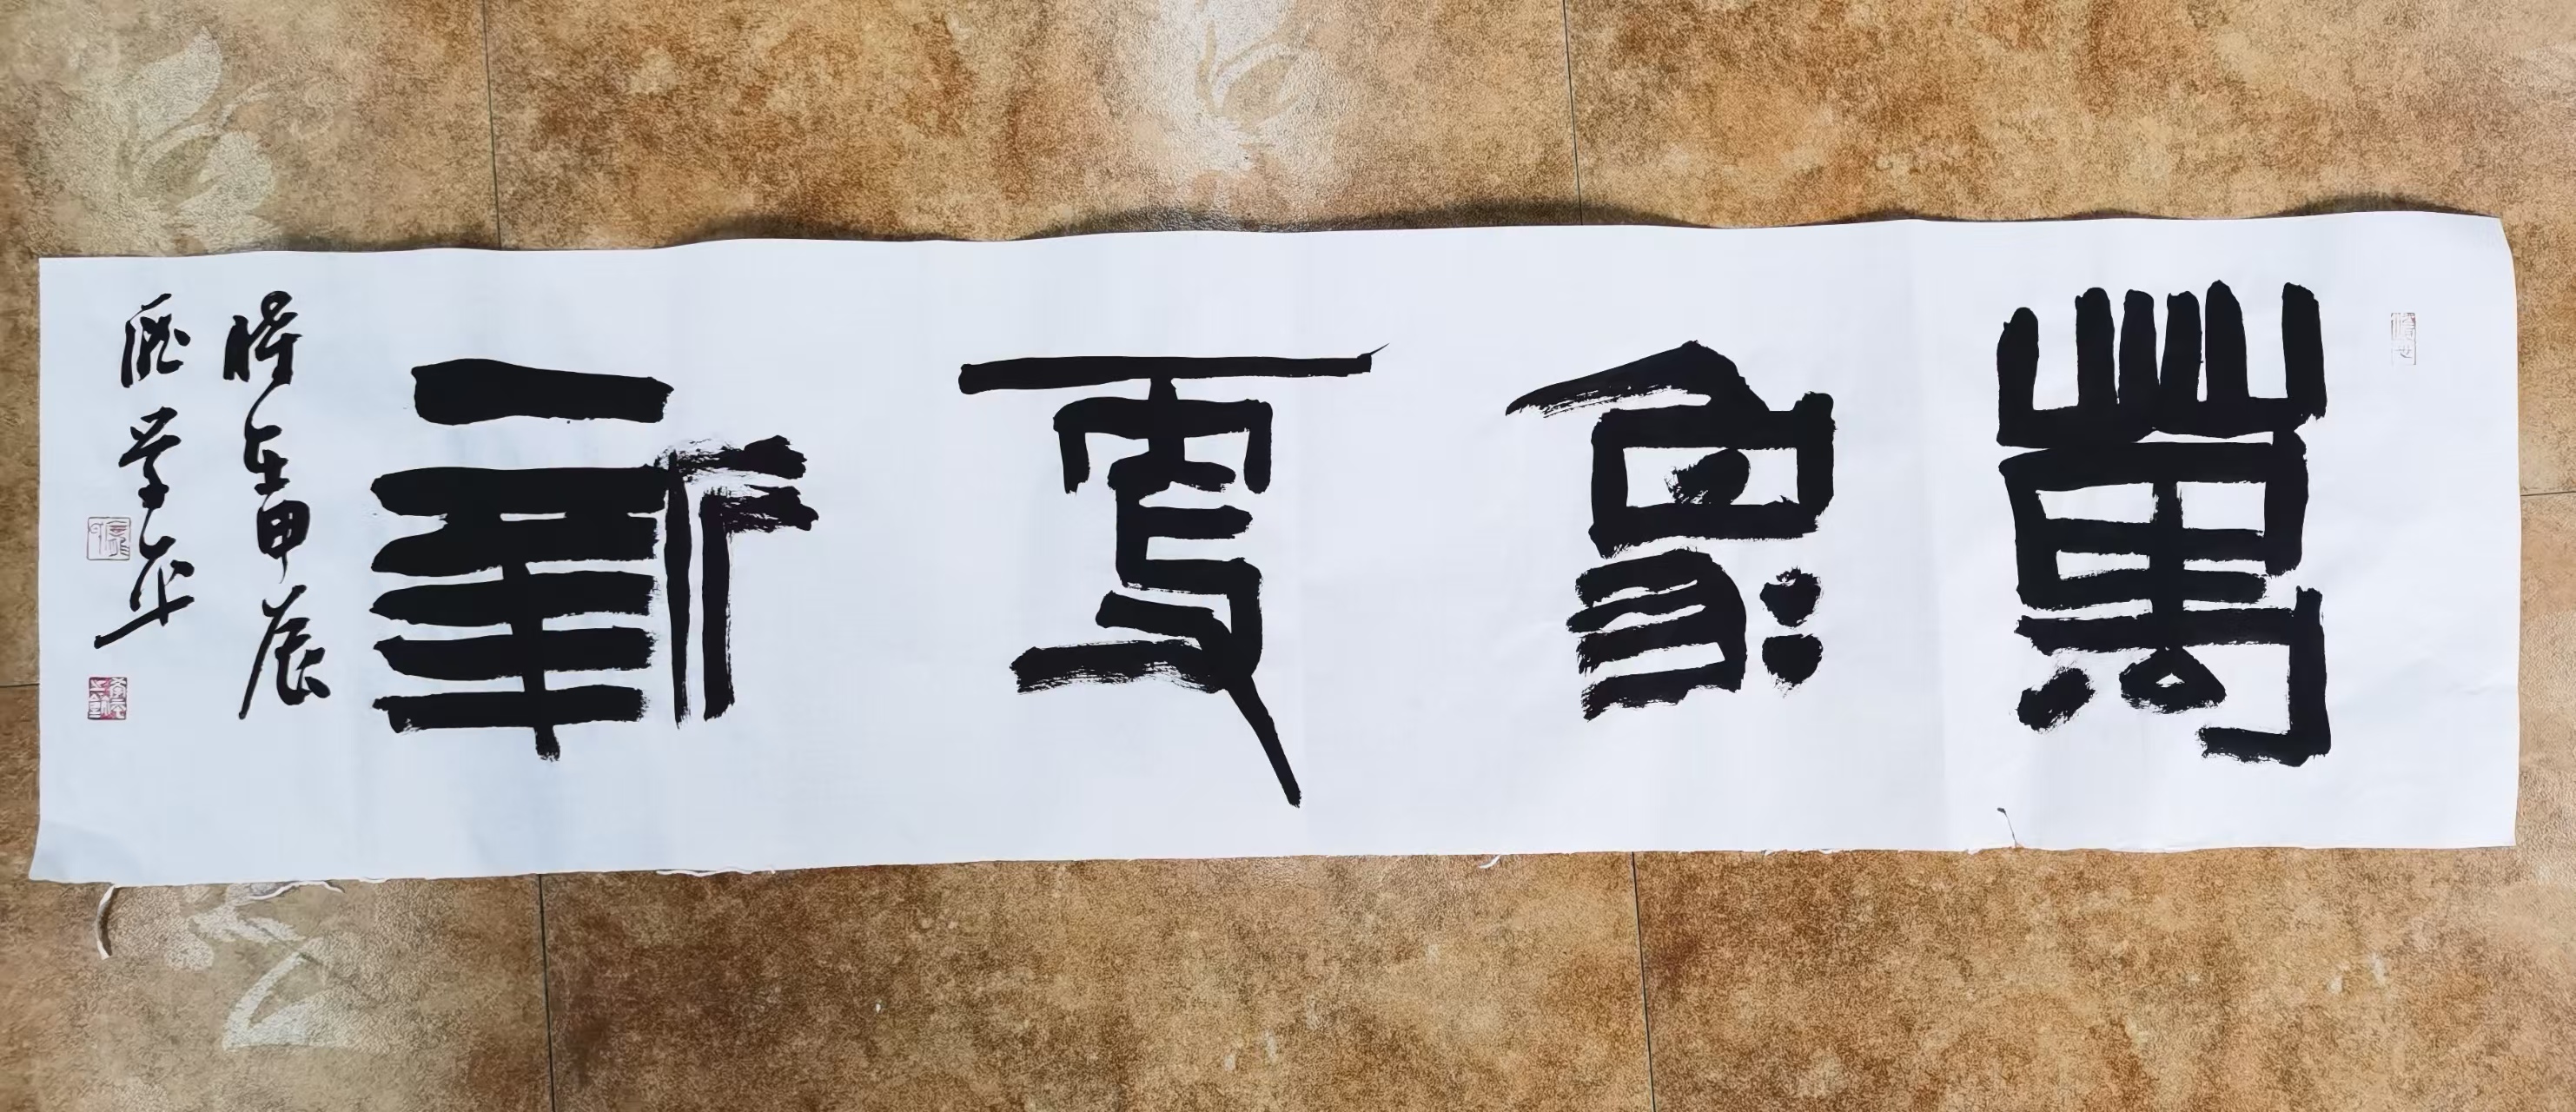 萬象更新
時在甲辰
學平